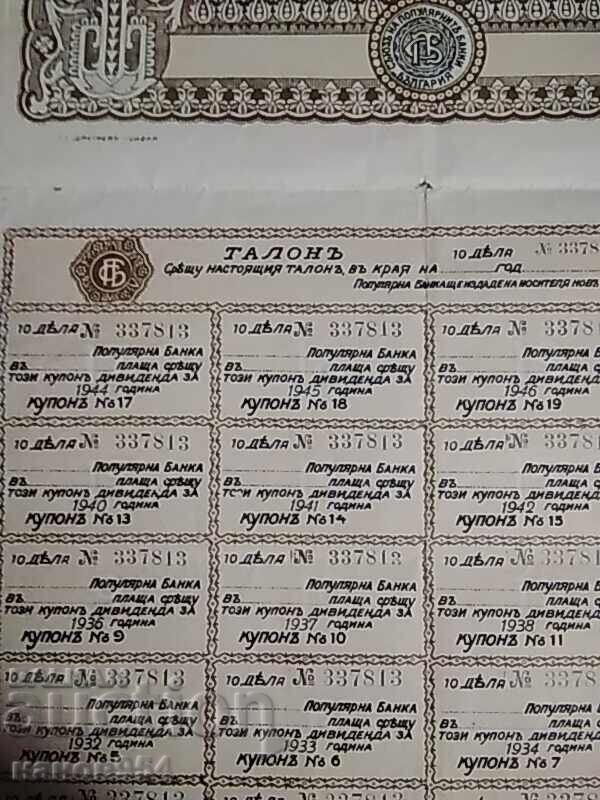 СЪЮЗЪ НА ПОПУЛЯРНИТѢ БАНКИ
БЪЛГАРИЯ
ТАЛОНЪ
10 ДѢЛА № 3378
СРѢЩУ НАСТОЯЩИЯ ТАЛОНЪ, ВЪ КРАЯ НА ГОД
ПОПУЛЯРНА БАНКА ЩЕ ИЗДАДЕ НА НОСИТЕЛЯ НОВЪ
10 ДѢЛА № 337813 10 ДѢЛА № 337813 10 ДѢЛА № 3378
ПОПУЛЯРНА БАНКА ПОПУЛЯРНА БАНКА ПОПУЛЯРНА
ВЪ ПЛАЩА СРѢЩУ ВЪ ПЛАЩА СРѢЩУ ВЪ ПЛАЩА
ТОЗИ КУПОН ДИВИДЕНДА ЗА ТОЗИ КУПОН ДИВИДЕНДА ЗА ТОЗИ КУПОН ДИВИДЕНД
1944 ГОДИНА 1945 ГОДИНА 1946 ГОДИНА
КУПОН № 17 КУПОН № 18 КУПОН № 19
10 ДѢЛА № 337813 10 ДѢЛА № 337813 10 ДѢЛА № 3378
ПОПУЛЯРНА БАНКА ПОПУЛЯРНА БАНКА ПОПУЛЯРНА
ВЪ ПЛАЩА СРѢЩУ ВЪ ПЛАЩА СРѢЩУ ВЪ ПЛАЩА
ТОЗИ КУПОН ДИВИДЕНДА ЗА ТОЗИ КУПОН ДИВИДЕНДА ЗА ТОЗИ КУПОН ДИВИДЕНД
1940 ГОДИНА 1941 ГОДИНА 1942 ГОДИНА
КУПОН № 13 КУПОН № 14 КУПОН № 15
10 ДѢЛА № 337813 10 ДѢЛА № 337813 10 ДѢЛА № 3378
ПОПУЛЯРНА БАНКА ПОПУЛЯРНА БАНКА ПОПУЛЯРНА
ВЪ ПЛАЩА СРѢЩУ ВЪ ПЛАЩА СРѢЩУ ВЪ ПЛАЩА
ТОЗИ КУПОН ДИВИДЕНДА ЗА ТОЗИ КУПОН ДИВИДЕНДА ЗА ТОЗИ КУПОН ДИВИДЕНД
1936 ГОДИНА 1937 ГОДИНА 1938 ГОДИНА
КУПОН № 9 КУПОН № 10 КУПОН № 11
10 ДѢЛА № 337813 10 ДѢЛА № 337813 10 ДѢЛА № 3378
ПОПУЛЯРНА БАНКА ПОПУЛЯРНА БАНКА ПОПУЛЯРНА
ВЪ ПЛАЩА СРѢЩУ ВЪ ПЛАЩА СРѢЩУ ВЪ ПЛАЩА
ТОЗИ КУПОН ДИВИДЕНДА ЗА ТОЗИ КУПОН ДИВИДЕНДА ЗА ТОЗИ КУПОН ДИВИДЕНД
1932 ГОДИНА 1933 ГОДИНА 1934 ГОДИНА
КУПОН № 5 КУПОН № 6 КУПОН № 7
auction